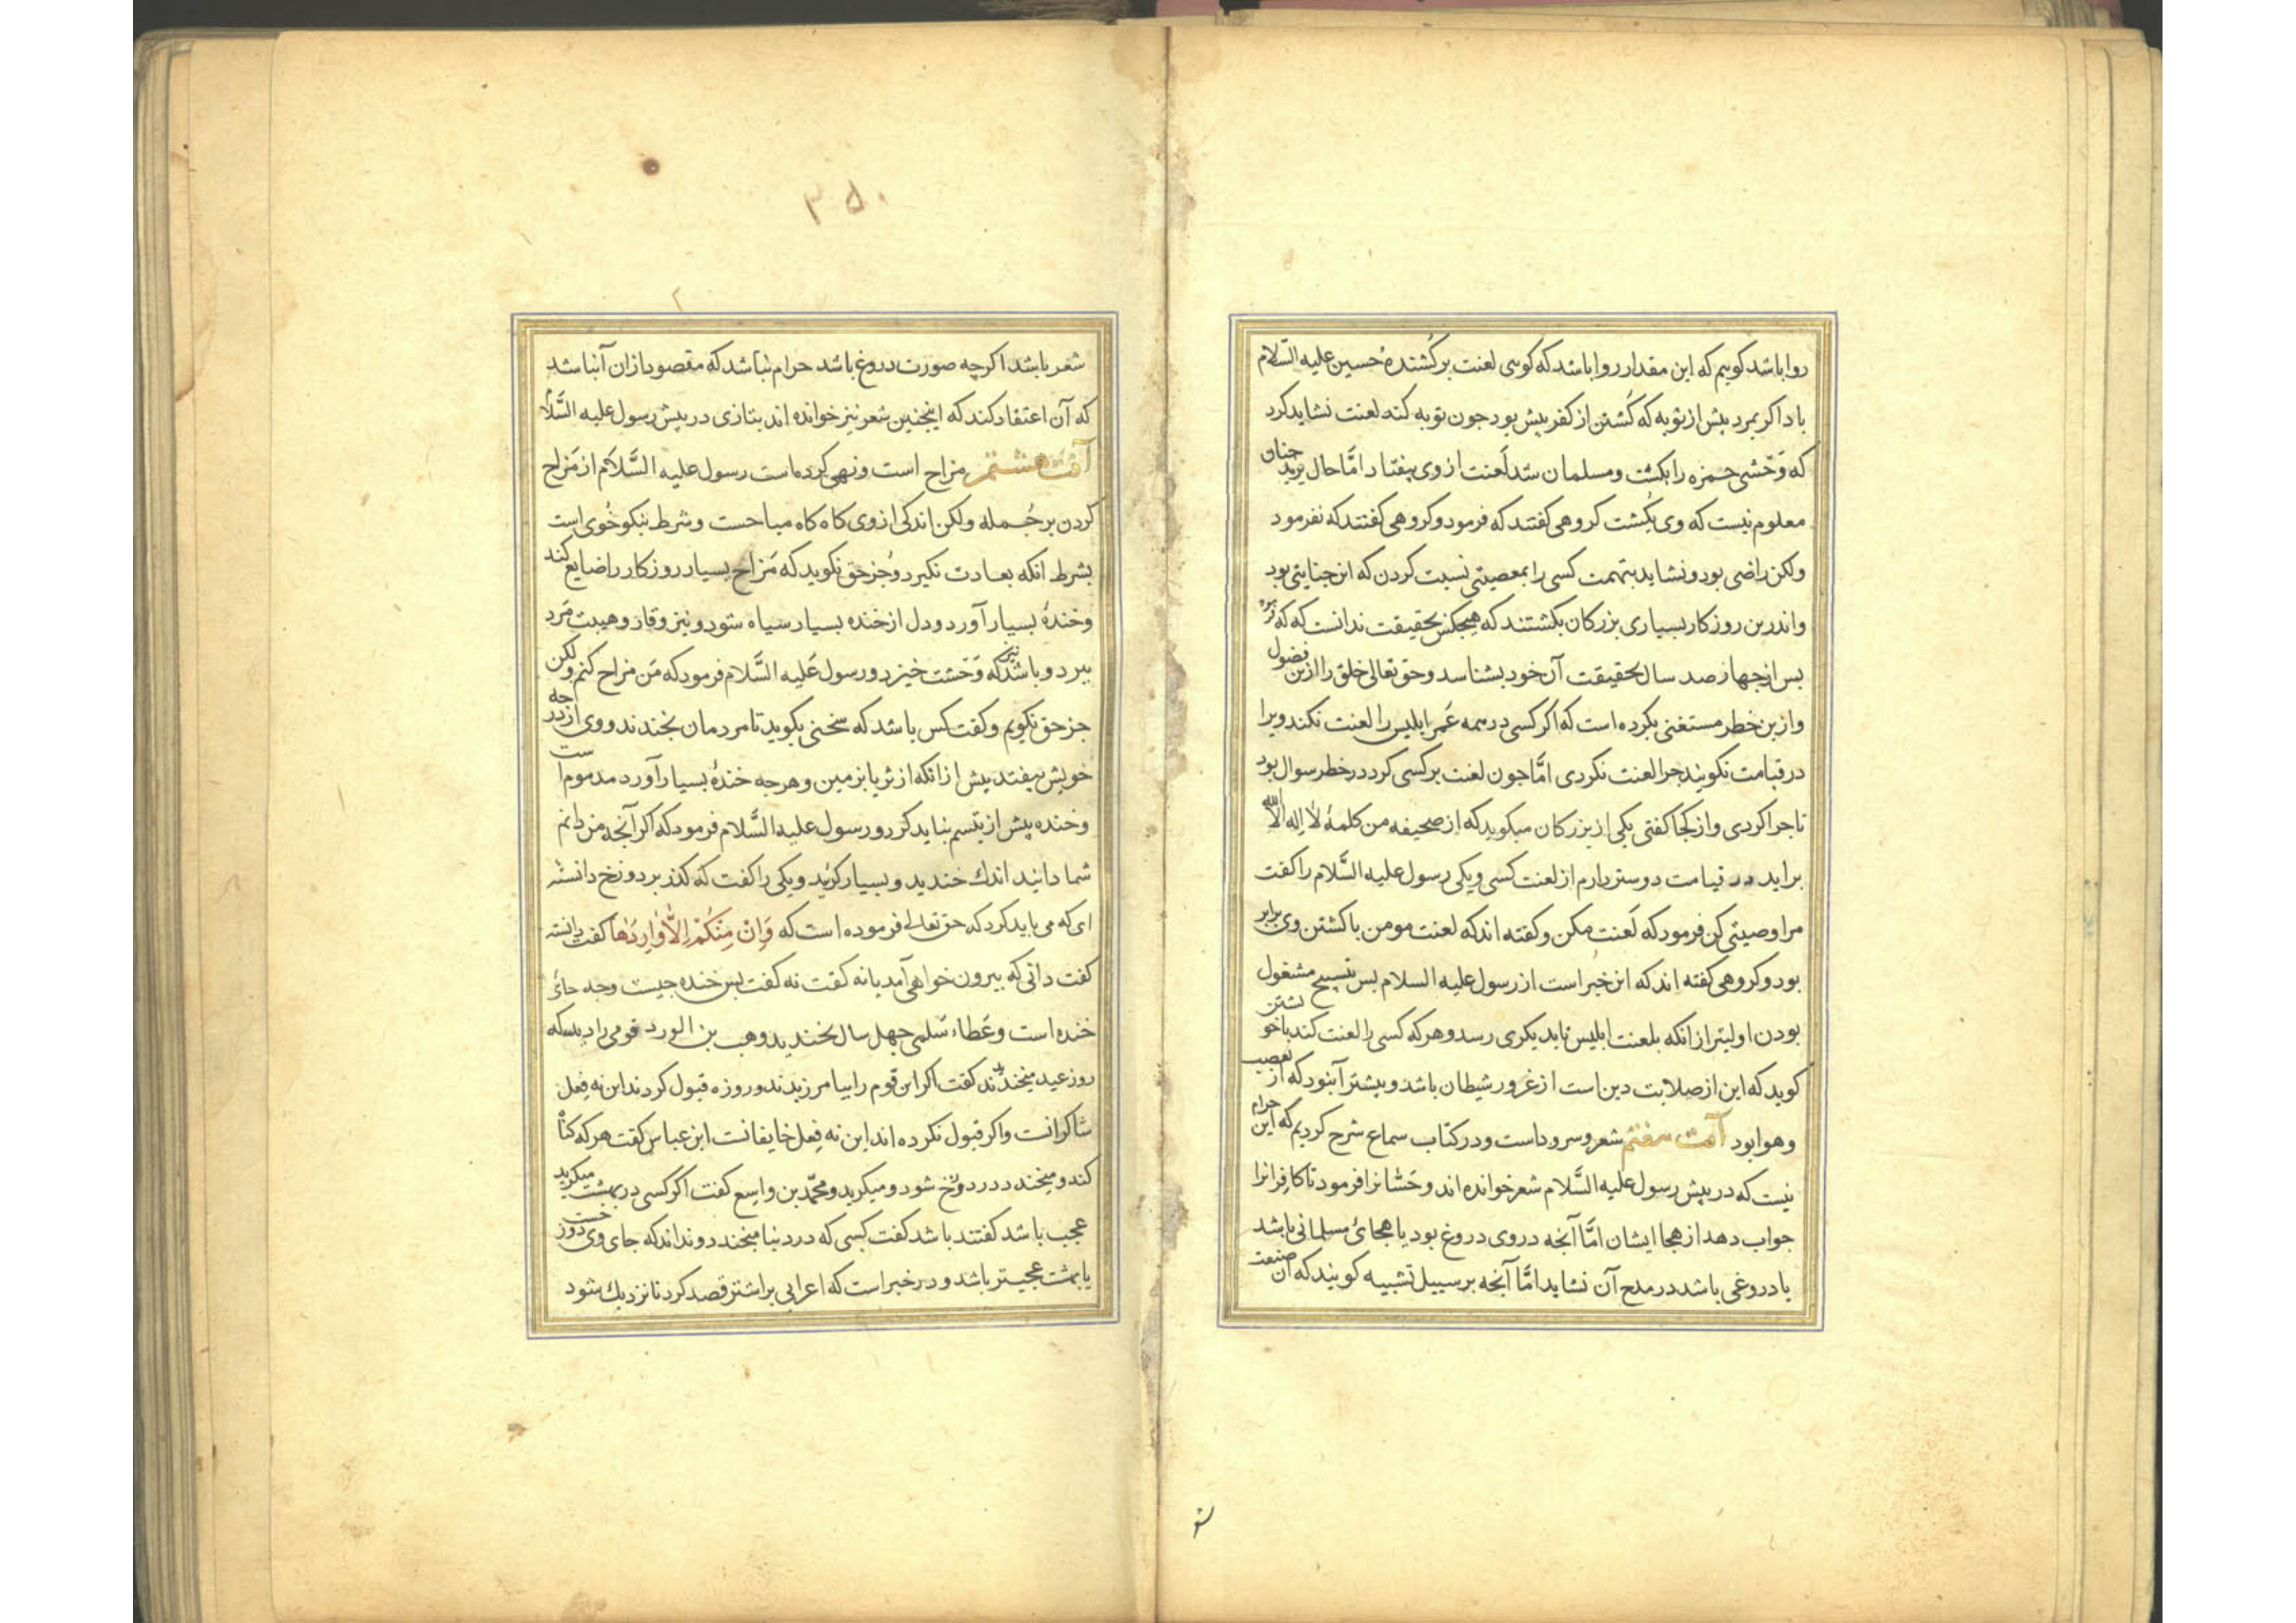 روا باشد کویم که این مقدار روا باشد که کوسی لعنت بر کُشندهٔ حسین علیه السّلام
باد اکر بمرد بیش از توبه که کُشتن از کفر بیش بود جون توبه کند لعنت نشاید کرد
که وَحشی حمزه را بکشت ومسلمان شد لَعنت از وی بیفتاد امّا حال یزید جنان
معلوم نیست که وی بکُشت کروهی کفتند که فرمود وکروهی کفتند که نفرمود
ولکن راضی بود ونشاید بتهمت کسی را بمعصیتی نسبت کردن که این جنایتی بود
واندرین روزکار بسیاری بزرکان بکشتند که هیجکس بحقیقت ندانست که که
بس از جهارصد سال بحقیقت آن خود بشناسد وحق تعالی خلق را ازین فضول
وازین خطر مستغنی بکرده است که اکر کسی در همه عُمر ابلیس را لعنت نکند ویرا
در قیامت نکویند جرا لعنت نکردی امّا جون لعنت بر کسی کرد در خطر سوال بود
تا جرا کردی واز کجا کفتی یکی از بزرکان میکوید که از صحیفه من کلمهٔ لا اِله الا الله
براید در قیامت دوستر دارم از لعنت کسی ویکی رسول علیه السَّلام را کفت
مرا وصیتی کن فرمود که لَعنت مکن وکفته اند که لعنت مومن با کشتن وی برابر
بود وکروهی کفته اند که این خبر است از رسول علیه السلام بس بتسبیح مشغول
بودن اولیتر از انکه بلعنت ابلیس تا بدیکری رسد وهر که کسی را لعنت کند با خویشتن
کوید که این از صلابت دین است از غرور شیطان باشد وبیشتر آن بود که از تعصب
وهوا بود آفت هفتم شعر وسرود است ودر کتاب سماع شرح کردیم که این حرام
نیست که در بیش رسول علیه السَّلام شعر خوانده اند وحَسّانرا فرمود تا کافرانرا
جواب دهد از هجا ایشان امَّا آنجه در وی دروغ بود یا هجائ مسلمانی باشد
یا دروغی باشد در مدح آن نشاید امَّا آنجه بر سبیل تشبیه کویند که آن صنعت
شو
۳۵۰
شعر باشد اکرچه صورت دروغ باشد حرام نباشد که مقصود ازان آن باشد
که آن اعتقاد کنند که اینجنین شعر نیز خوانده اند بتازی در بیش رسول علیه السَّلام
آفت هشتم مزاح است ونهی کرده است رسول علیه السَّلام از مَزاح
کردن بر جُمله ولکن اندکی از وی کاه کاه مباحست وشرط نیکو خُوی است
بشرط انکه بعادت نکیرد وجُز حق نکوید که مَزاح بسیار روزکار را ضایع کند
وخندهٔ بسیار آورد ودل از خنده بسیار سیاه شود ونیز وقار وهیبت مَرد
ببرد وباشد که نیز وَحشت خیزد ورسول عَلیه السَّلام فرمود که مَن مزاح کنم ولکن
جز حق نکویم وکفت کس باشد که سخنی بکوید تا مردمان بخندند ووی از درجه
خویش بیفتد بیش از انکه از ثریا بزمین وهرجه خندهٔ بسیار آورد مذموم است
وخنده بیش از تبسم نباید کرد ورسول علیه السَّلام فرمود که اکر آنجه من دانم
شما دانید اندك خندید وبسیار کریید ویکی را کفت که کذر بر دوزخ دانسته
ای که می باید کرد که حق تعالی فرموده است که وَاِنْ مِنکُمْ اِلَّا وَارِدُهَا کفت دانسته
کفت دانی که بیرون خواهی آمد یا نه کفت نه کفت بس خنده جیست وجه جائ
خنده است وعَطاء سَلمی جهل سال نخندید وهب بن الورد قومی را دید که
روز عید میخندیدند کفت اکر این قوم را بیامرزیدند وروزه قبول کردند این نه فِعل
شاکرانست واکر قبول نکرده اند این نه فِعل خایفانست ابن عباس کفت هر که کناه
کند ومیخندد در دوزخ شود ومیکرید ومحمّد بن واسِع کفت اکر کسی در بهشت میکرید
عجب باشد کفتند باشد کفت کسی که در دنیا میخندد ونداند که جای وی دوزخست
یا بهشت عجیبتر باشد ودر خبر است که اعرابی بر اشتر قصد کرد تا نزدیك شود